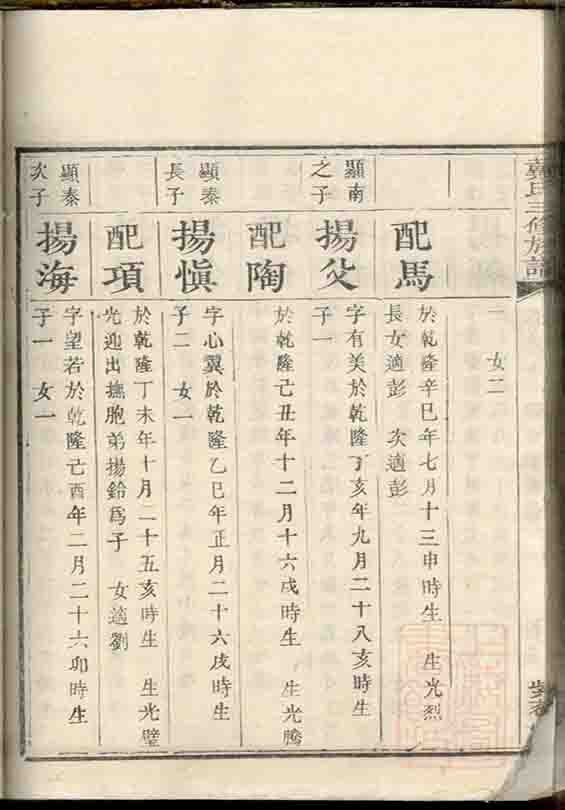 氏三修族譜
二 女二
配馬
於乾隆辛巳年七月十三申時生 生光烈
長女適彭 次適彭
顯南
之子
揚父
字有美於乾隆丁亥年九月二十八亥時生
子一
配陶
於乾隆己丑年十二月十六戌時生 生光騰
顯泰
長子
揚慎
字心翼於乾隆乙巳年正月二十六戌時生
子二 女一
配項
於乾隆丁未年十月二十五亥時生 生光璧
光迎出撫胞弟揚鈴爲子 女適劉
顯泰
次子
揚海
字望若於乾隆己酉年二月二十六卯時生
子一 女一